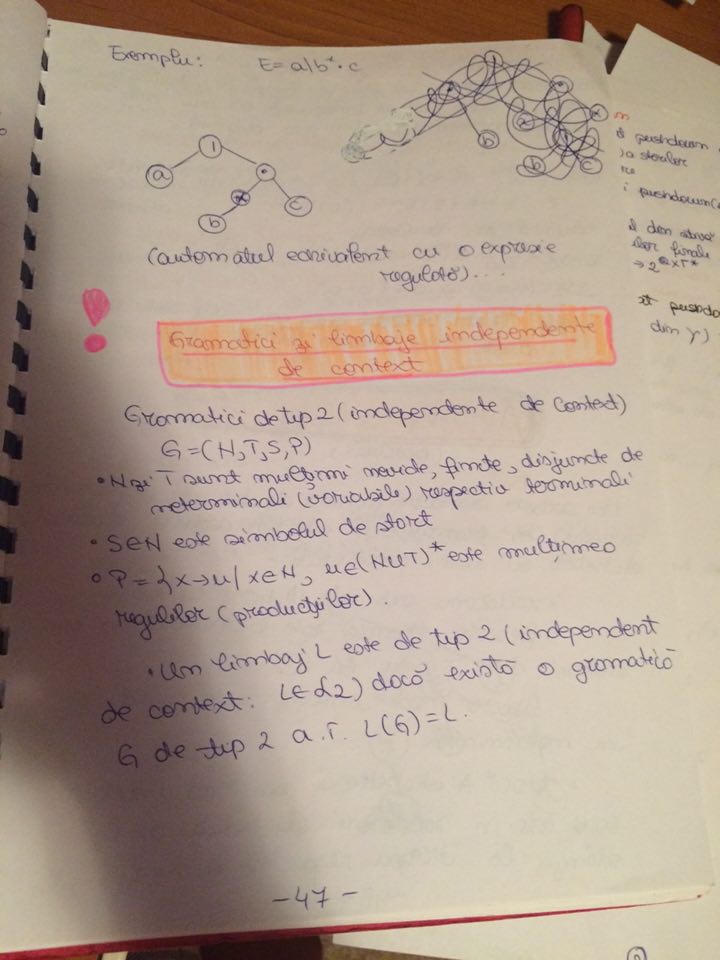 Exemplu: E = a|b*·c
|
a
·
*
b
c
b
*
b
c
(automatul echivalent cu o expresie
regulată)...
!
Gramatici și limbaje independente
de context
Gramatici de tip 2 (independente de context)
G = (N, T, S, P)
• N și T sunt mulțimi nevide, finite, disjuncte de
neterminali (variabile) respectiv terminali
• S∈N este simbolul de start
• P = {x → u | x∈N, u∈(N∪T)* este mulțimea
regulilor (producțiilor).
• Un limbaj L este de tip 2 (independent
de context: L∈L2) dacă există o gramatică
G de tip 2 a.î. L(G) = L.
- 47 -
pushdown
a starilor
i pushdown(
din
ilor finale
→ 2^Q×Γ*
pushdo
din γ)